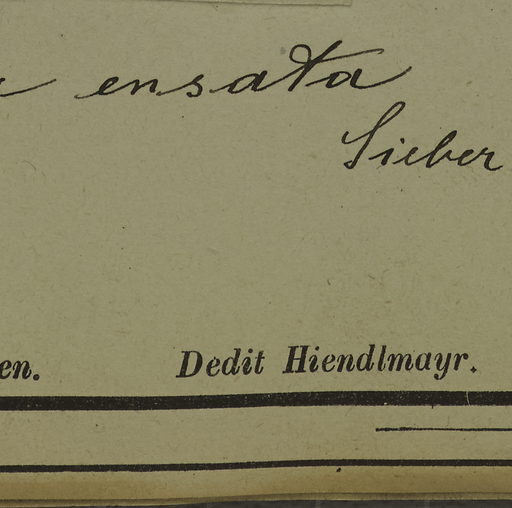 ensata
Sieber
en. Dedit Hiendlmayr.